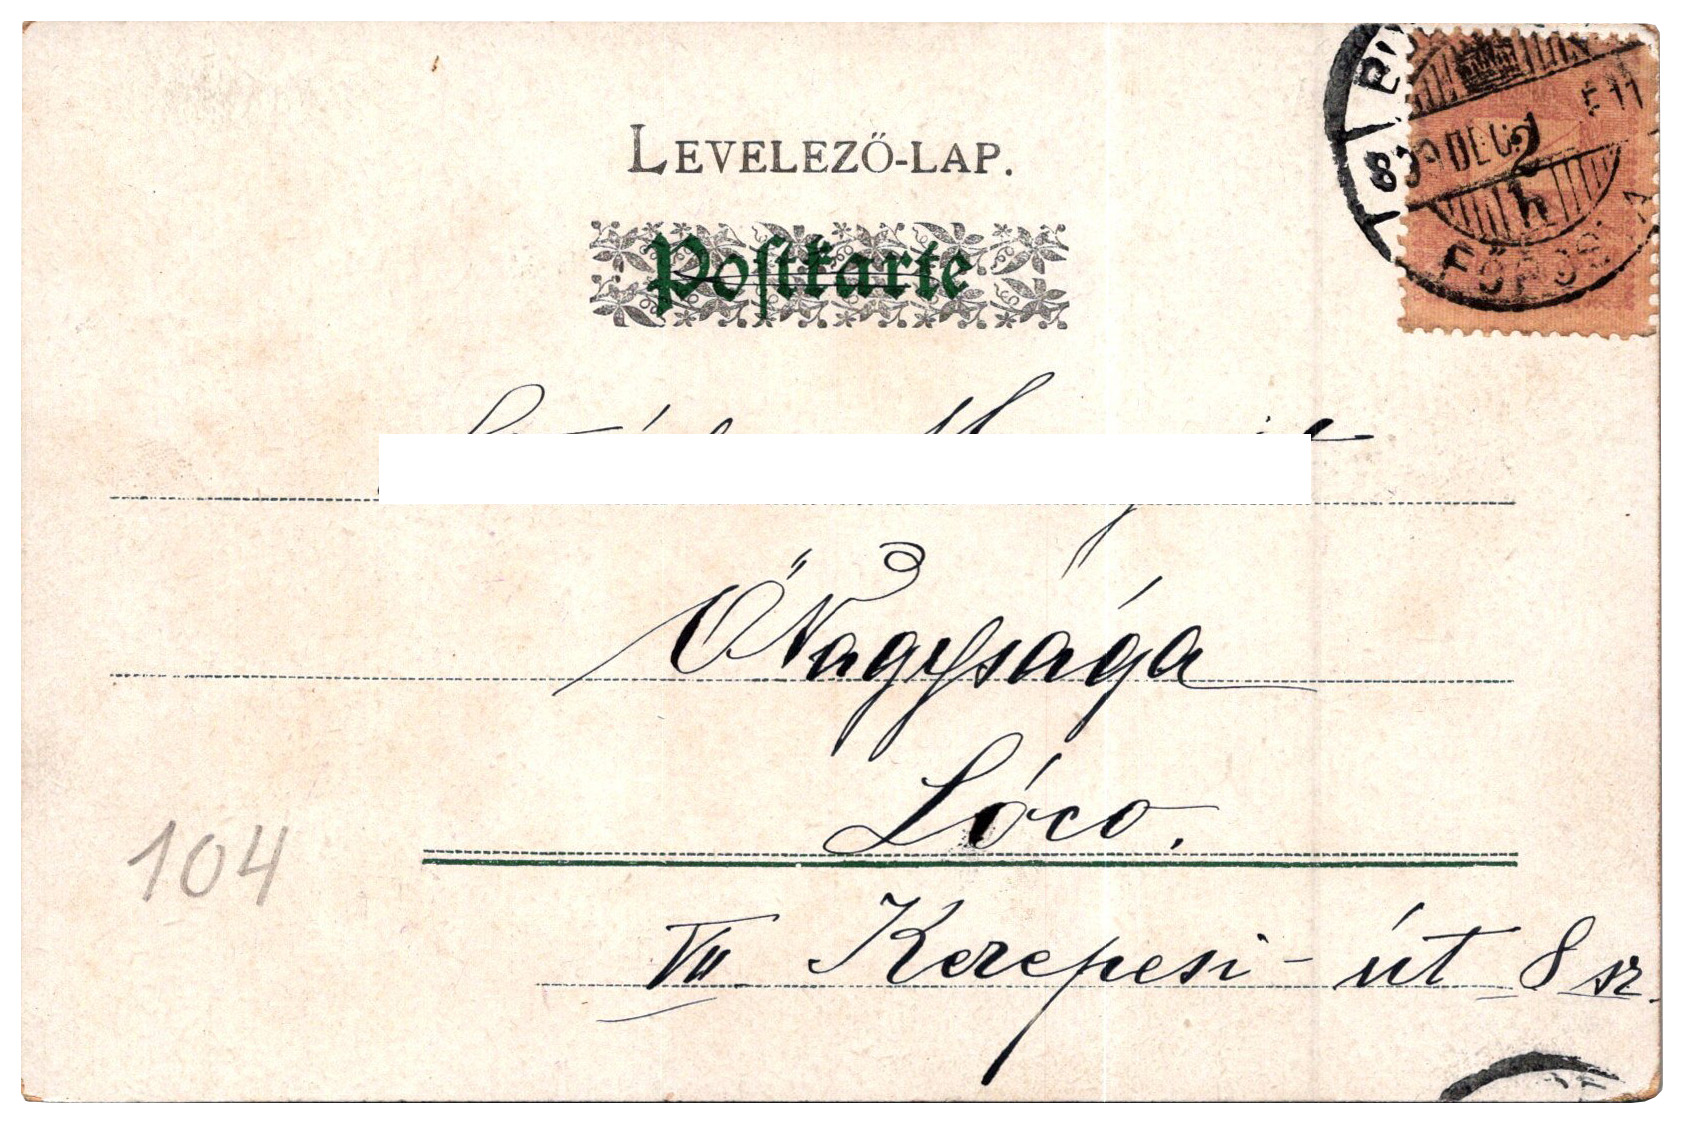 LEVELEZŐ-LAP.
Postkarte
899 DEC. 2
Ő Nagysága
Lóco.
VII. Kerepesi-út 8 sz.
104